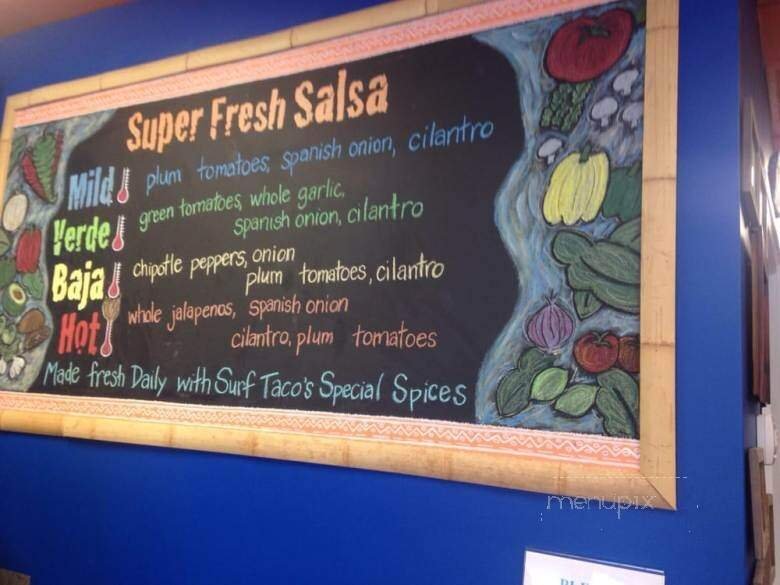 Super Fresh Salsa
Mild plum tomatoes, spanish onion, cilantro
Verde green tomatoes, whole garlic,
spanish onion, cilantro
Baja chipotle peppers, onion
plum tomatoes, cilantro
Hot whole jalapenos, Spanish onion
cilantro, plum tomatoes
Made fresh Daily with Surf Taco's Special Spices
menupix